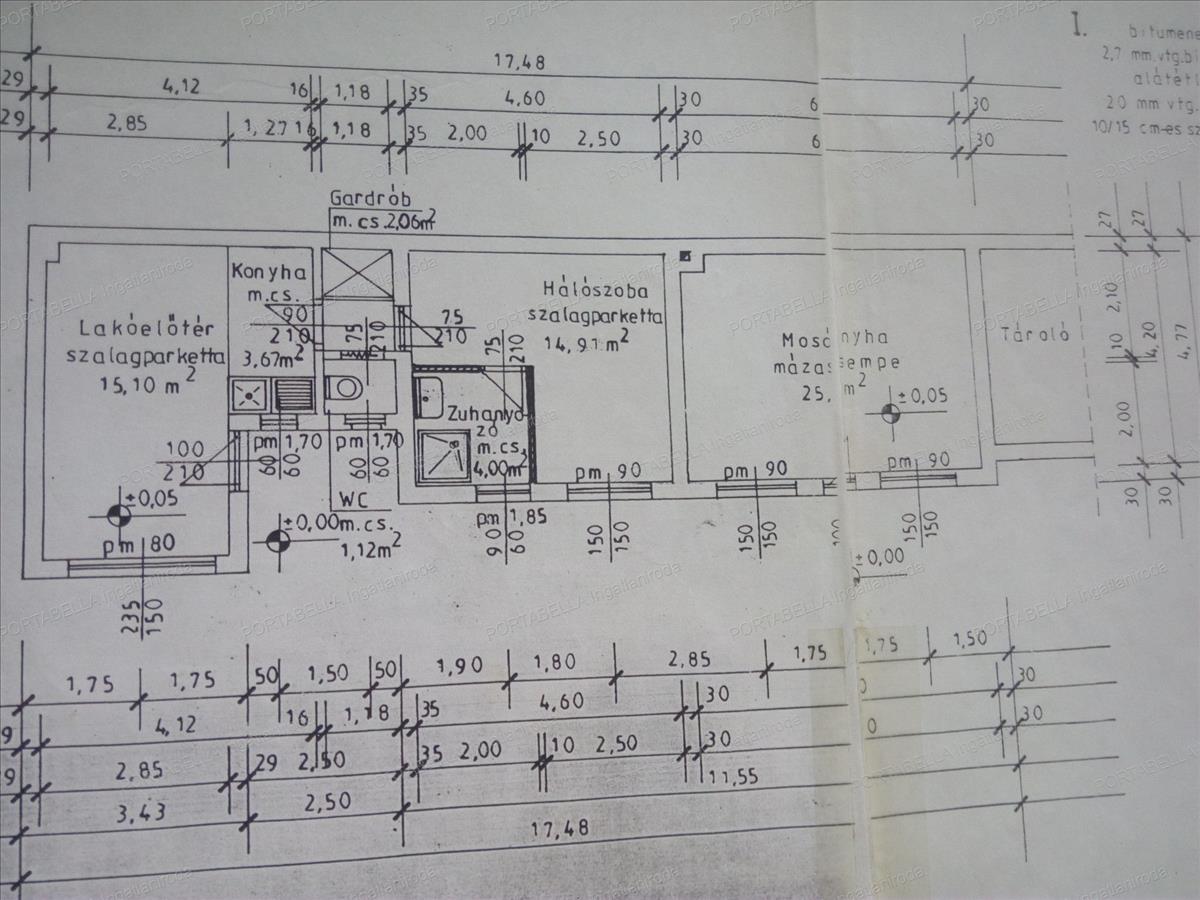 I.
bitumene
2,7 mm.vtg.bi
alátétl
20 mm vtg.
10/15 cm-es sz
17,48
29 4,12 16 1,18 35 4,60 30 6 30
29 2,85 1,27 16 1,18 35 2,00 10 2,50 30 6 30
Gardrób
m.cs.2,06m²
Konyha
m.cs.
90
210
3,67m²
Lakóelőtér
szalagparketta
15,10 m²
75
210
75
210
Hálószoba
szalagparketta
14,91 m²
75
210
Zuhanyó
20
m.cs.
4,00m²
Mosó nyha
máza sempe
25, m²
±0,05
Tároló
27 27
2,10 10 2,00
4,20
4,77
30 30
100
210
pm 1,70
60 60
pm 1,70
60 60
WC
m.cs.
1,12m²
±0,05
±0,00
pm 80
235
150
pm 1,85
90
60
pm 90
150
150
pm 90
150
150
pm 90
150
150
±0,00
1,75 1,75 50 1,50 50 1,90 1,80 2,85 1,75 1,75 1,50
9 4,12 16 1,18 35 4,60 30 0 30
9 2,85 29 2,50 35 2,00 10 2,50 30 0 30
3,43 2,50 11,55
17,48
PORTABELLA Ingatlaniroda